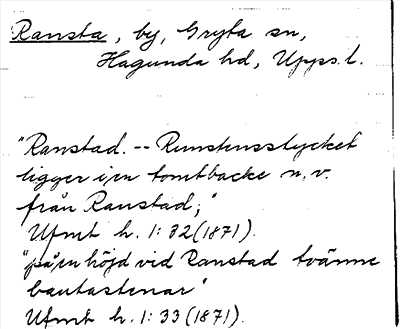 Ransta, by, Gryta sn,
Hagunda hd, Upps. l.
"Ranstad. -- Runstensstycket
ligger i en tomtbacke n.v.
från Ranstad;"
Ufmt h. 1: 32 (1871).
"på en höjd vid Ranstad tvänne
bautastenar"
Ufmt h. 1: 33 (1871).